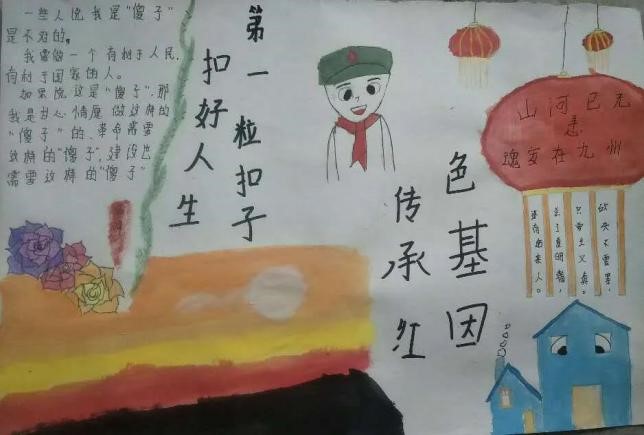 一些人说我是"傻子"
是不对的。
我要做一个有利于人民,
有利于国家的人。
如果说这是"傻子",那
我是甘心情愿做这样的
"傻子"的,革命需要
这样的"傻子",建设也
需要这样的"傻子"
扣好人生
第一粒扣子
传承红
色基因
山河已无
恙
魂安在九州
砍头不要紧,
只要主义真。
杀了夏明翰,
还有后来人。